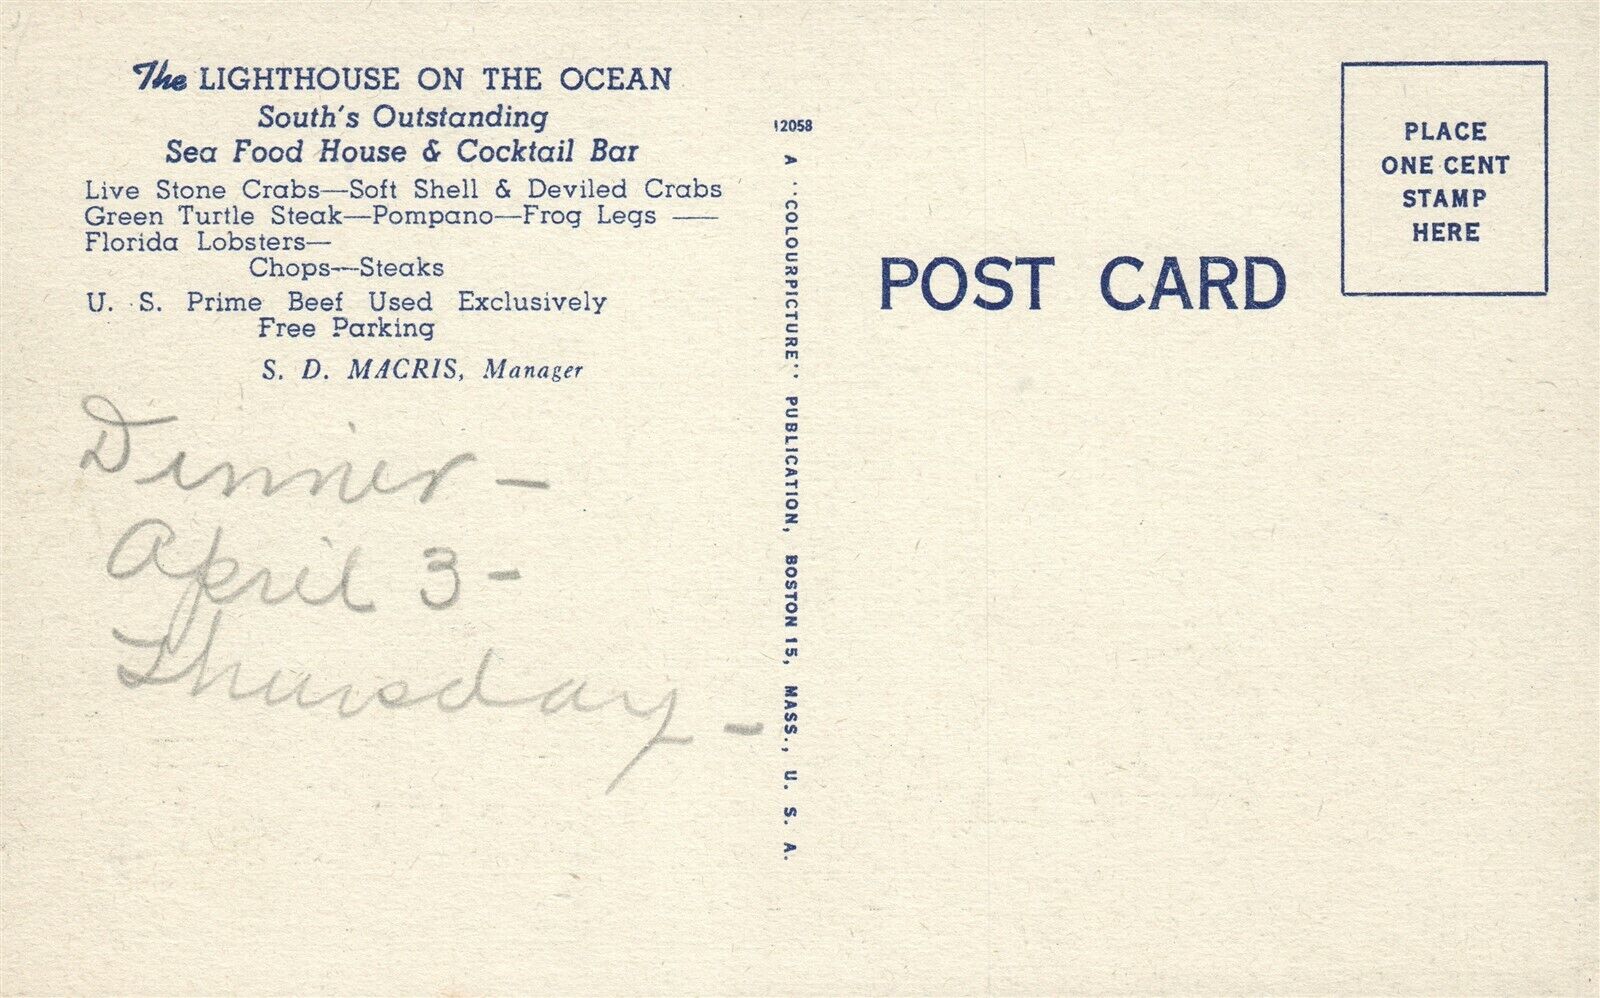 The LIGHTHOUSE ON THE OCEAN
South's Outstanding
Sea Food House & Cocktail Bar
Live Stone Crabs—Soft Shell & Deviled Crabs
Green Turtle Steak—Pompano—Frog Legs —
Florida Lobsters—
Chops—Steaks
U. S. Prime Beef Used Exclusively
Free Parking
S. D. MACRIS, Manager
Dinner -
April 3 -
Thursday -
12058
A "COLOURPICTURE" PUBLICATION, BOSTON 15, MASS., U. S. A.
POST CARD
PLACE
ONE CENT
STAMP
HERE